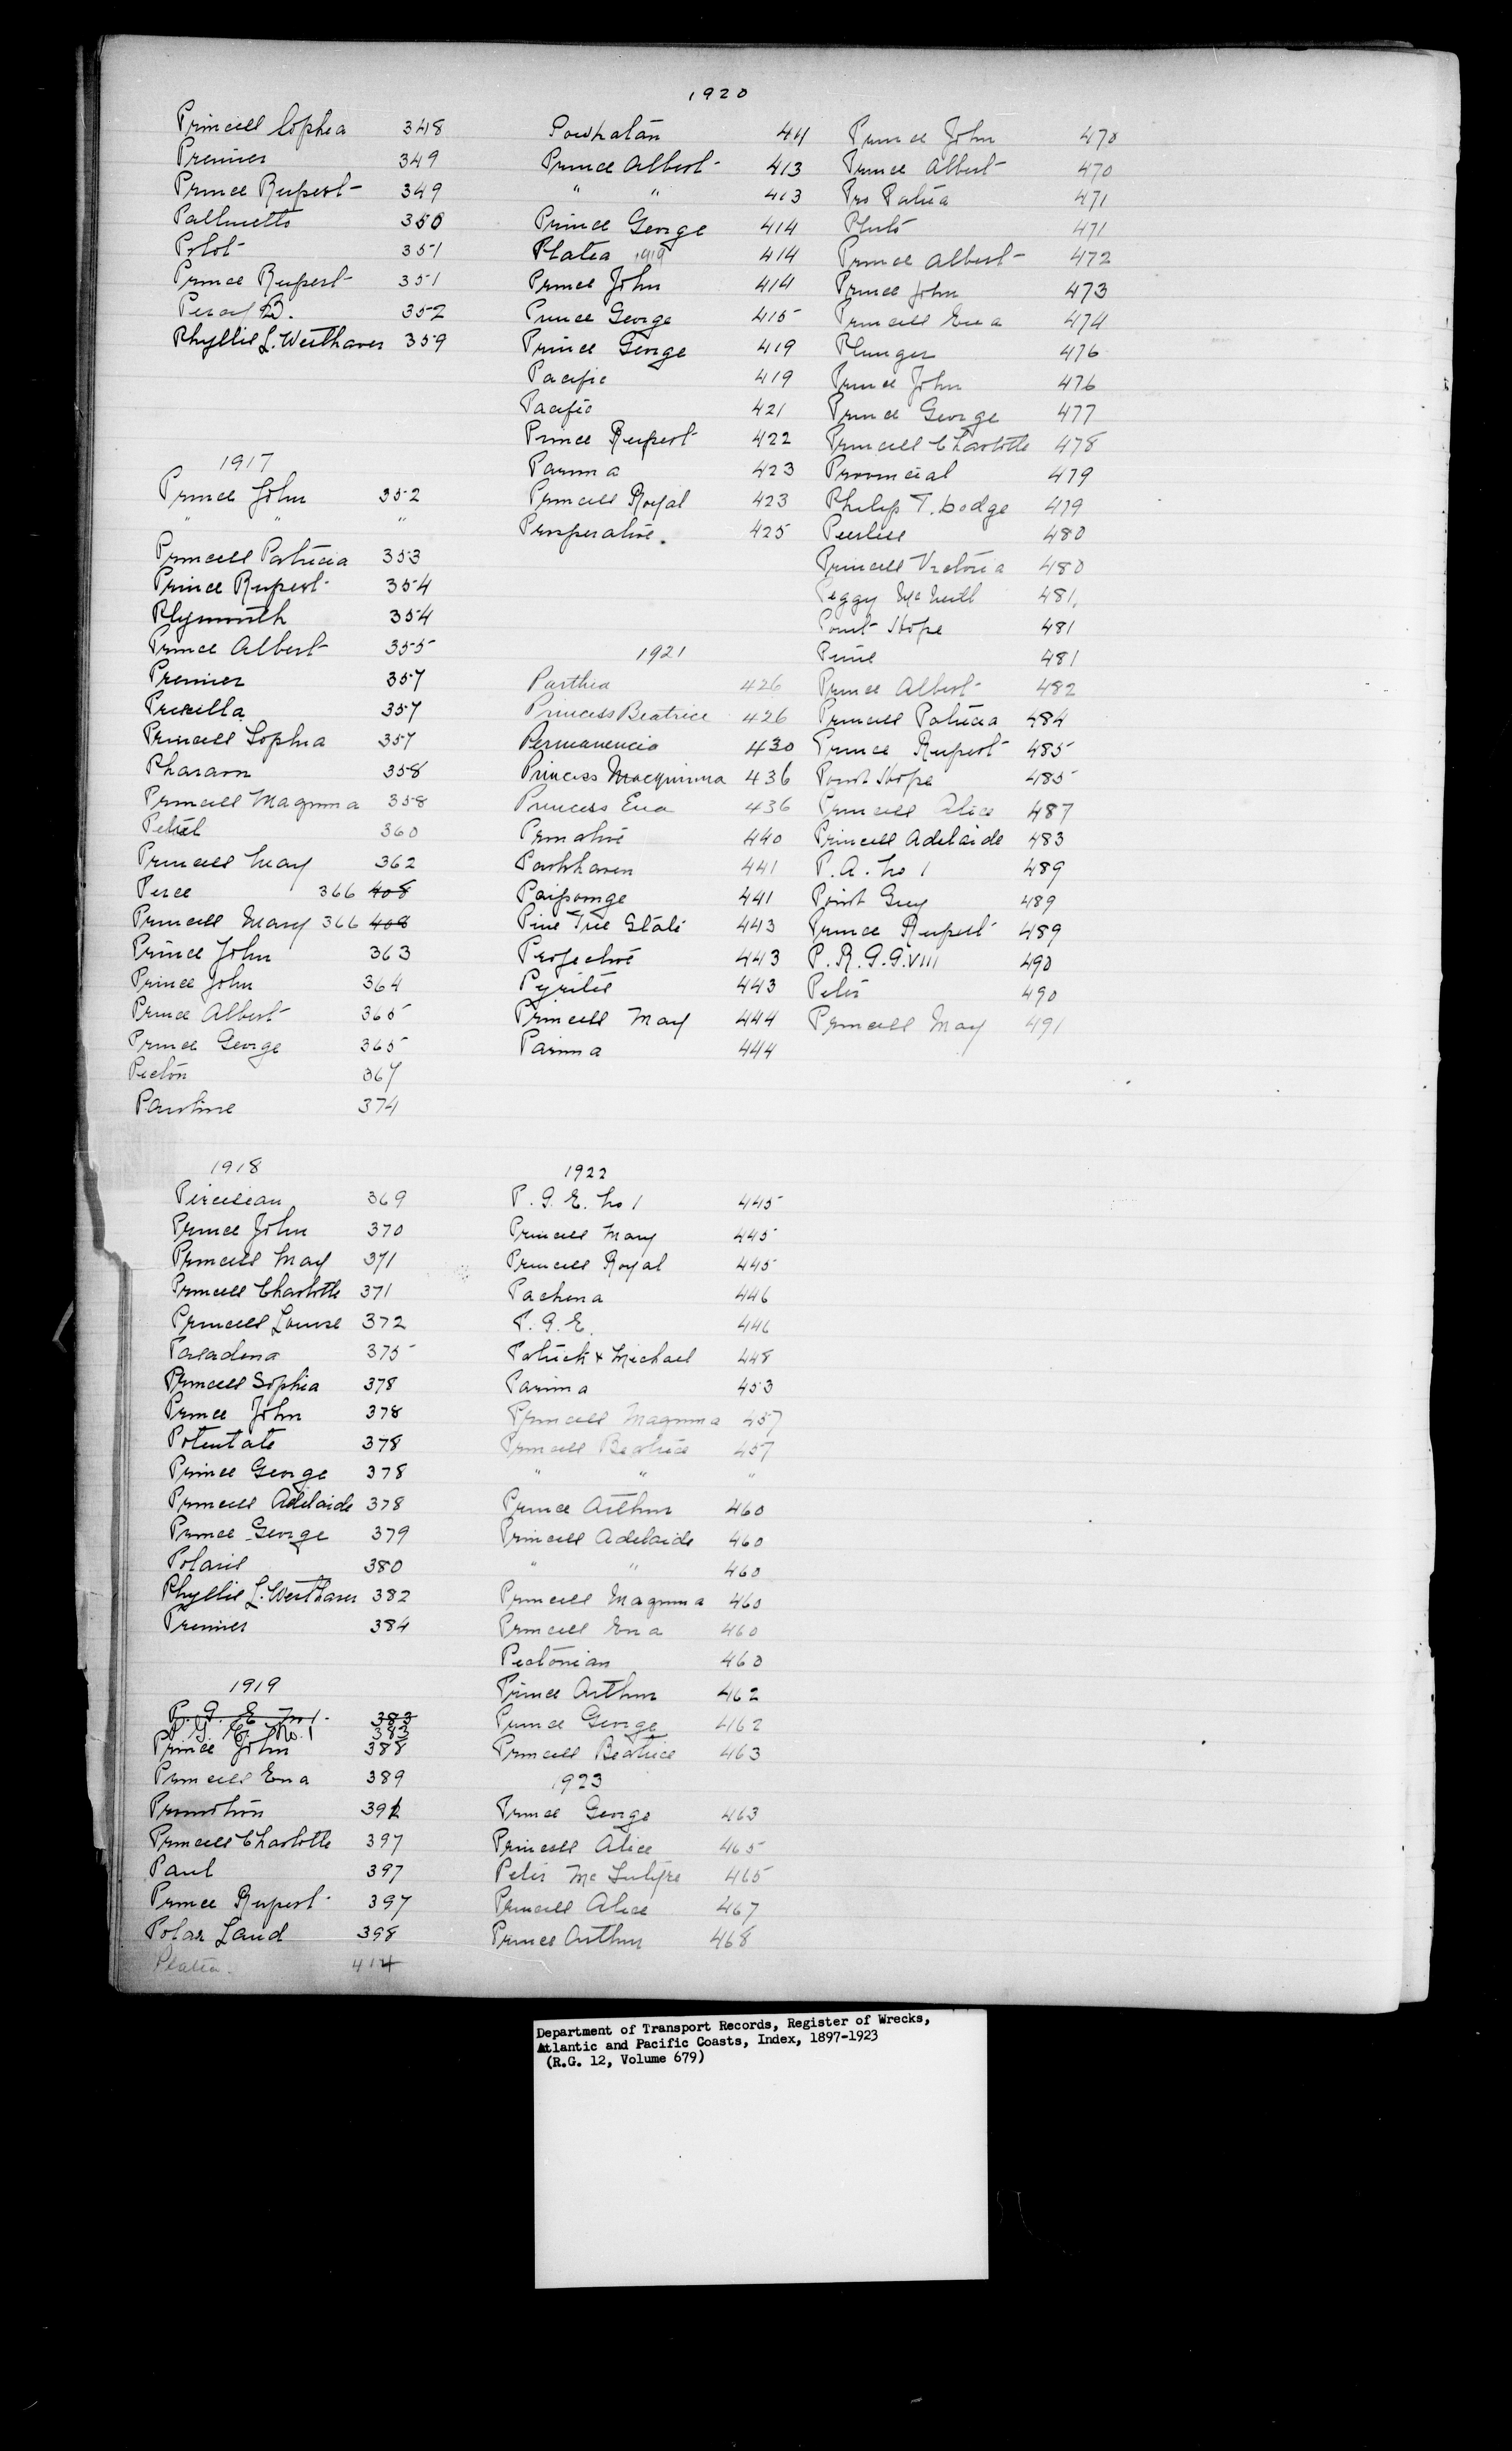 1920
Princess Sophia 348
Premier 349
Prince Rupert 349
Pallmetto 350
Pilot 351
Prince Rupert 351
Percy B. 352
Phyllis L. Westhaver 359
1917
Prince John 352
" " "
Princess Patricia 353
Prince Rupert 354
Plymouth 354
Prince Albert 355
Premier 357
Priscilla 357
Princess Sophia 357
Pharaon 358
Princess Maquinna 358
Petrel 360
Princess May 362
Perce 366 408
Princess Mary 366 408
Prince John 363
Prince John 364
Prince Albert 365
Prince George 365
Picton 367
Pauline 374
1918
369
Prince John 370
Princess May 371
Princess Charlotte 371
Princess Louise 372
Pasadena 375
Princess Sophia 378
Prince John 378
Potentate 378
Prince George 378
Princess Adelaide 378
Prince George 379
Polaris 380
Phyllis L. Westhaver 382
Premier 384
1919
P. G. E. No 1. 383
P. G. E. No. 1 383
Prince John 388
Princess Ena 389
Promotion 392
Princess Charlotte 397
Paul 397
Prince Rupert 397
Polar Land 398
Platea. 414
Powhatan 411
Prince Albert 413
" " 413
Prince George 414
Platea 1919 414
Prince John 414
Prince George 415
Prince George 419
Pacific 419
Pacific 421
Prince Rupert 422
Parima 423
Princess Royal 423
Prosperative. 425
1921
Parthia 426
Princess Beatrice 426
Permanencia 430
Princess Macquinna 436
Princess Ena 436
440
Parkhaven 441
Paipoonge 441
Pine Tree State 443
Projective 443
Pyrites 443
Princess May 444
Parima 444
1922
P. G. E. No 1 445
Princess Mary 445
Princess Royal 445
Pachena 446
P. G. E. 446
Patrick & Michael 448
Parima 453
Princess Maquinna 457
Princess Beatrice 457
" " "
Prince Arthur 460
Princess Adelaide 460
" " 460
Princess Maquinna 460
Princess Ena 460
Pictonian 460
Prince Arthur 462
Prince George 462
Princess Beatrice 463
1923
Prince George 463
Princess Alice 465
Peter McIntyre 465
Princess Alice 467
Prince Arthur 468
Prince John 470
Prince Albert 470
Pro Patria 471
Pluto 471
Prince Albert 472
Prince John 473
Princess Ena 474
Plunger 476
Prince John 476
Prince George 477
Princess Charlotte 478
Provincial 479
Philip T. Dodge 479
Peerless 480
Princess Victoria 480
Peggy McNeill 481.
Point Hope 481
481
Prince Albert 482
Princess Patricia 484
Prince Rupert 485
Point Hope 485
Princess Alice 487
Princess Adelaide 483
P. A. No 1 489
Point Grey 489
Prince Rupert 489
P. R. G. G. VIII 490
490
Princess May 491
Department of Transport Records, Register of Wrecks,
Atlantic and Pacific Coasts, Index, 1897-1923
(R.G. 12, Volume 679)